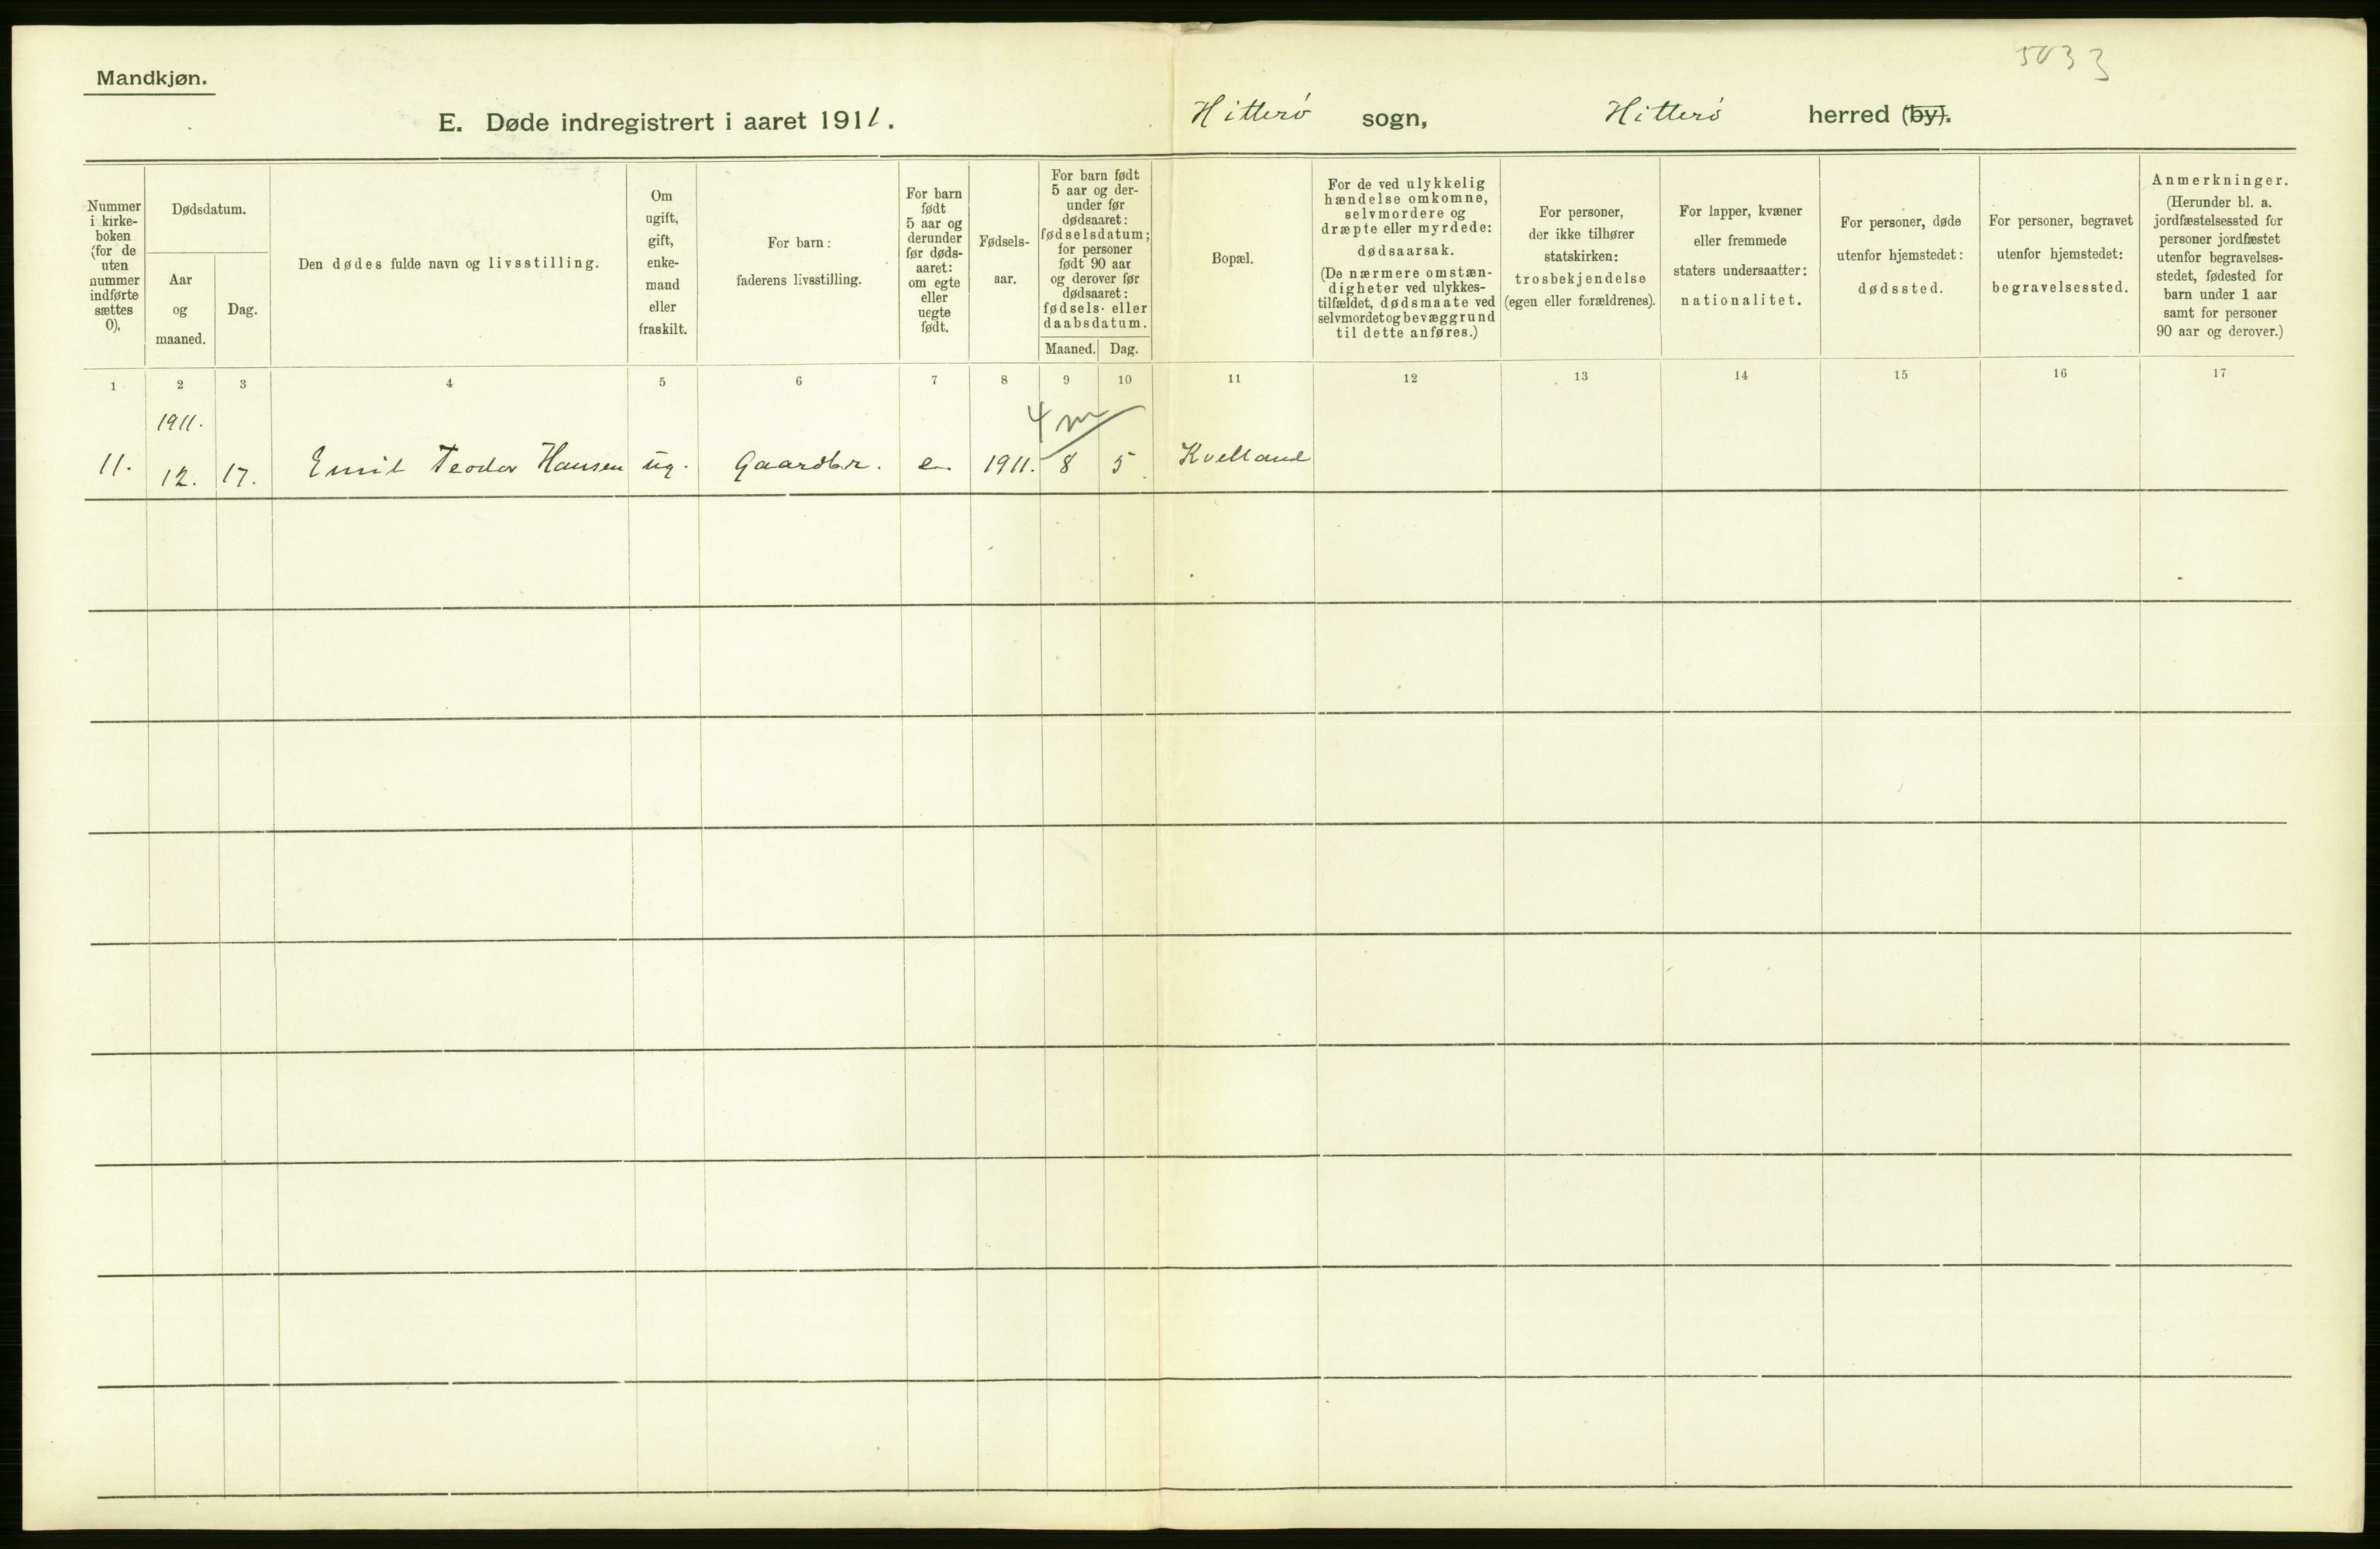 5033
Mandkjøn.
E. Døde indregistrert i aaret 1911. Hitterö sogn, Hitterö herred (by).
Nummer
i kirke-
boken
(for de
uten
nummer
indførte
sættes
0).
Dødsdatum.
Aar
og
maaned.
Dag.
Den dødes fulde navn og livsstilling.
Om
ugift,
gift,
enke-
mand
eller
fraskilt.
For barn:
faderens livsstilling.
For barn
født
5 aar og
derunder
før døds-
aaret:
om egte
eller
uegte
født.
Fødsels-
aar.
For barn født
5 aar og der-
under før
dødsaaret:
fødselsdatum;
for personer
født 90 aar
og derover før
dødsaaret:
fødsels- eller
daabsdatum.
Maaned. Dag.
Bopæl.
For de ved ulykkelig
hændelse omkomne,
selvmordere og
dræpte eller myrdede:
dødsaarsak.
(De nærmere omstæn-
digheter ved ulykkes-
tilfældet, dødsmaate ved
selvmordet og bevæggrund
til dette anføres.)
For personer,
der ikke tilhører
statskirken:
trosbekjendelse
(egen eller forældrenes).
For lapper, kvæner
eller fremmede
staters undersaatter:
nationalitet.
For personer, døde
utenfor hjemstedet:
dødssted.
For personer, begravet
utenfor hjemstedet:
begravelsessted.
Anmerkninger.
(Herunder bl. a.
jordfæstelsessted for
personer jordfæstet
utenfor begravelses-
stedet, fødested for
barn under 1 aar
samt for personer
90 aar og derover.)
1 2 3 4 5 6 7 8 9 10 11 12 13 14 15 16 17
1911. 4 m
11. 12. 17. Emil Teodor Hansen ug. Gaardbr. e. 1911. 8 5. Kvelland